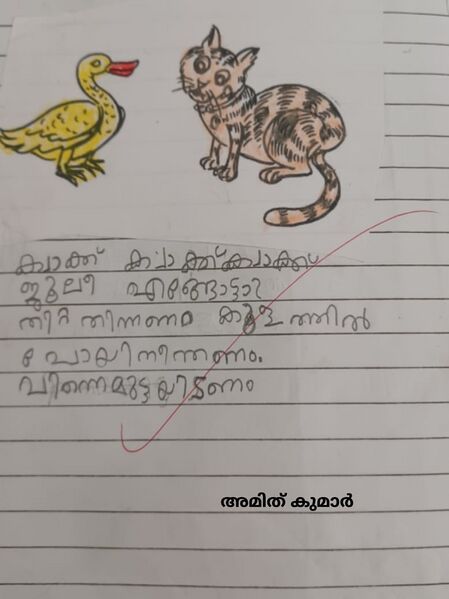 ക്വാക്ക് ക്വാക്ക് ക്വാക്ക്
ജൂലീ എങ്ങോട്ടാ
തീറ്റ തിന്നണം കുളത്തിൽ
പോയി നീന്തണം.
പിന്നെ മുട്ടയിടണം
അമിത് കുമാർ